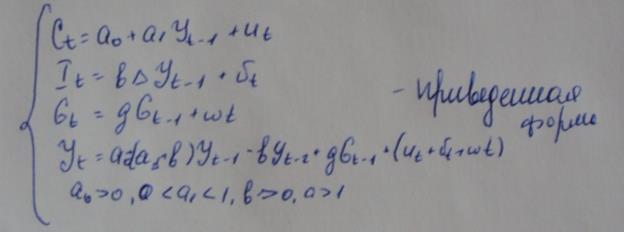 Ct = a0 + a1 Yt-1 + ut
It = b Δ Yt-1 + δt
Gt = g Gt-1 + wt
Yt = a0(a1+b) Yt-1 - b Yt-2 + g Gt-1 + (ut + δt + wt)
a0 > 0, 0 < a1 < 1, b > 0, a > 1
- приведенная
форма